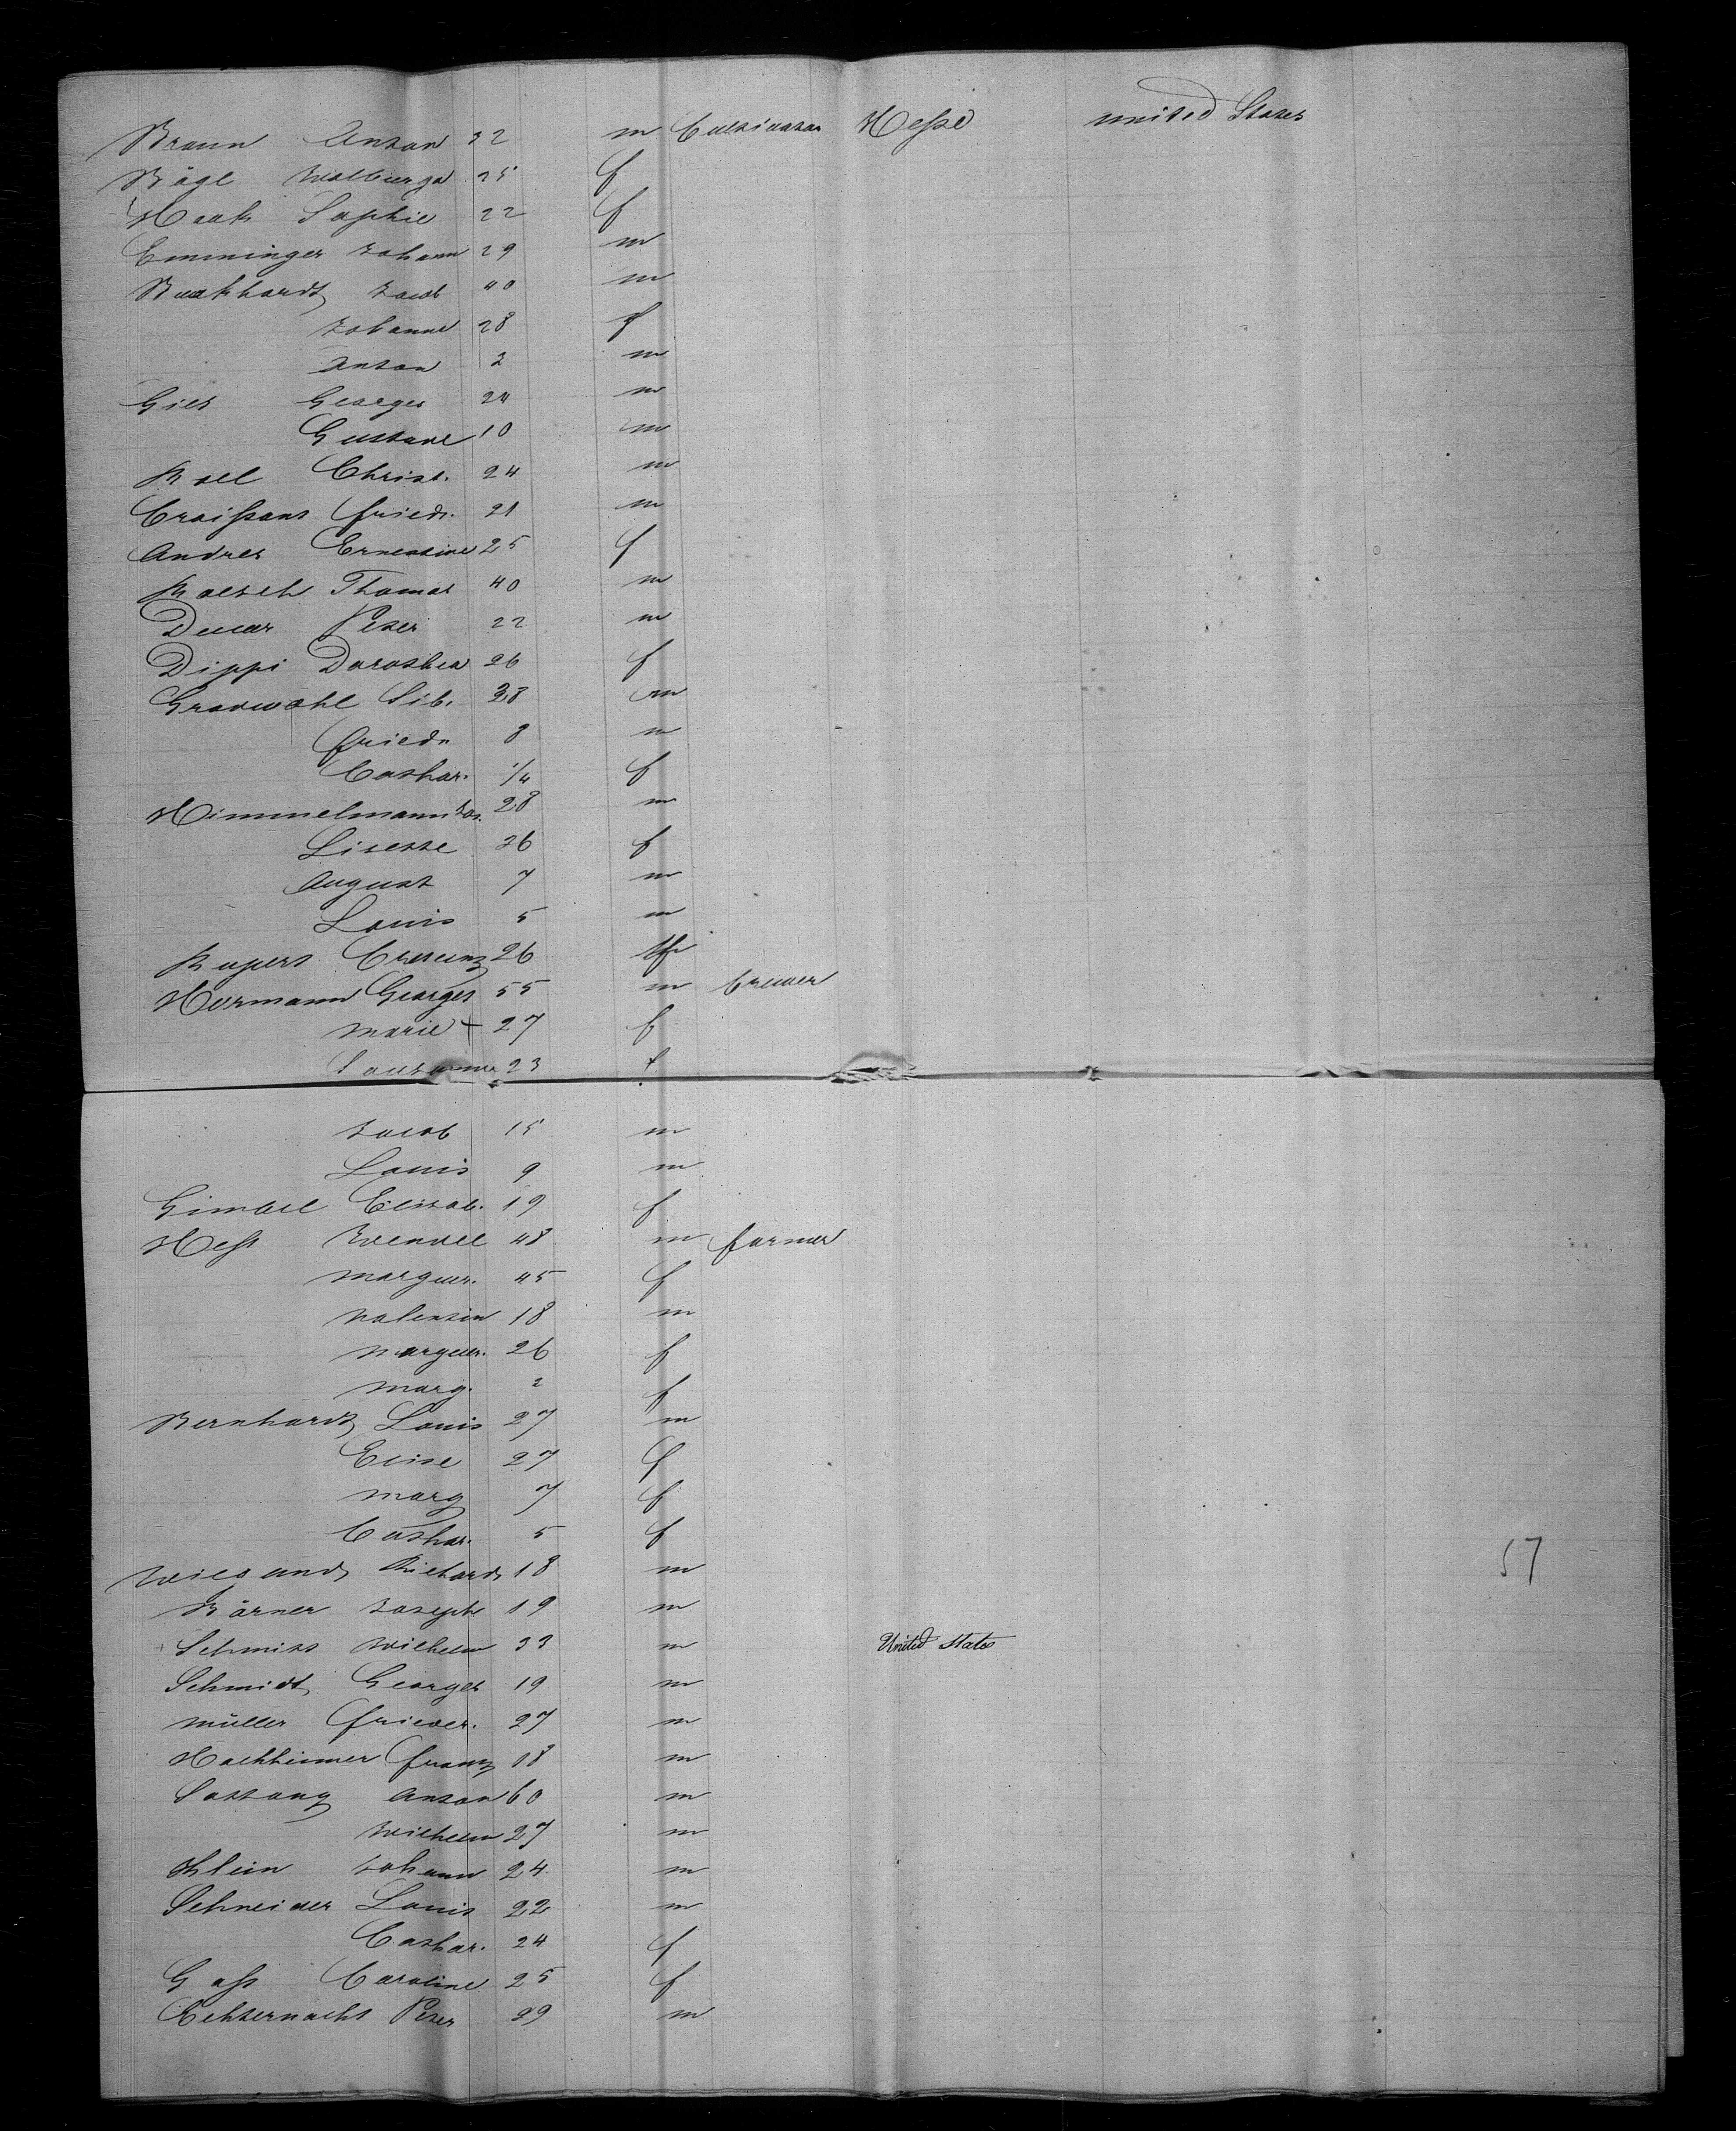 Braun Anton 32 m Cultivator Hesse united States
Bögl Walburga 25 f
Hauk Sophie 22 f
Emminger Johann 29 m
Burkhardt Jacob 40 m
Johanne 28 f
Anton 2 m
Gies Georges 24 m
Gustave 10 m
Roll Christ. 24 m
Croissant Friedr. 21 m
Andres Ernestine 25 f
Thomas 40 m
Peter 22 m
Dippi Dorothea 26 f
Gradwohl Sib. 38 m
Friedr 8 m
Cathar. 1/4 f
Himmelmann Jos. 28 m
Lisette 36 f
August 7 m
Louis 5 m
Rupert Crescenz 26 f
Hermann Georges 55 m brewer
Marie + 27 f
23 f
Jacob 15 m
Louis 9 m
Gimbel Elisab. 19 f
Hess Wendel 48 m farmer
Marguer. 45 f
Valentin 18 m
Marguer. 26 f
Marg. 2 f
Bernhardt Louis 27 m
Elise 27 f
Marg 7 f
Cathar. 5 f
Wiegand Richard 18 m
Börner Joseph 19 m
Schmitt Wilhelm 33 m United States
Schmidt Georges 19 m
Müller Frieder. 27 m
Hochheimer Franz 18 m
Sattang Anton 60 m
Wilhelm 27 m
Klein Johann 24 m
Schneider Louis 22 m
Cathar. 24 f
Gass Caroline 25 f
Echternacht Peter 29 m
57